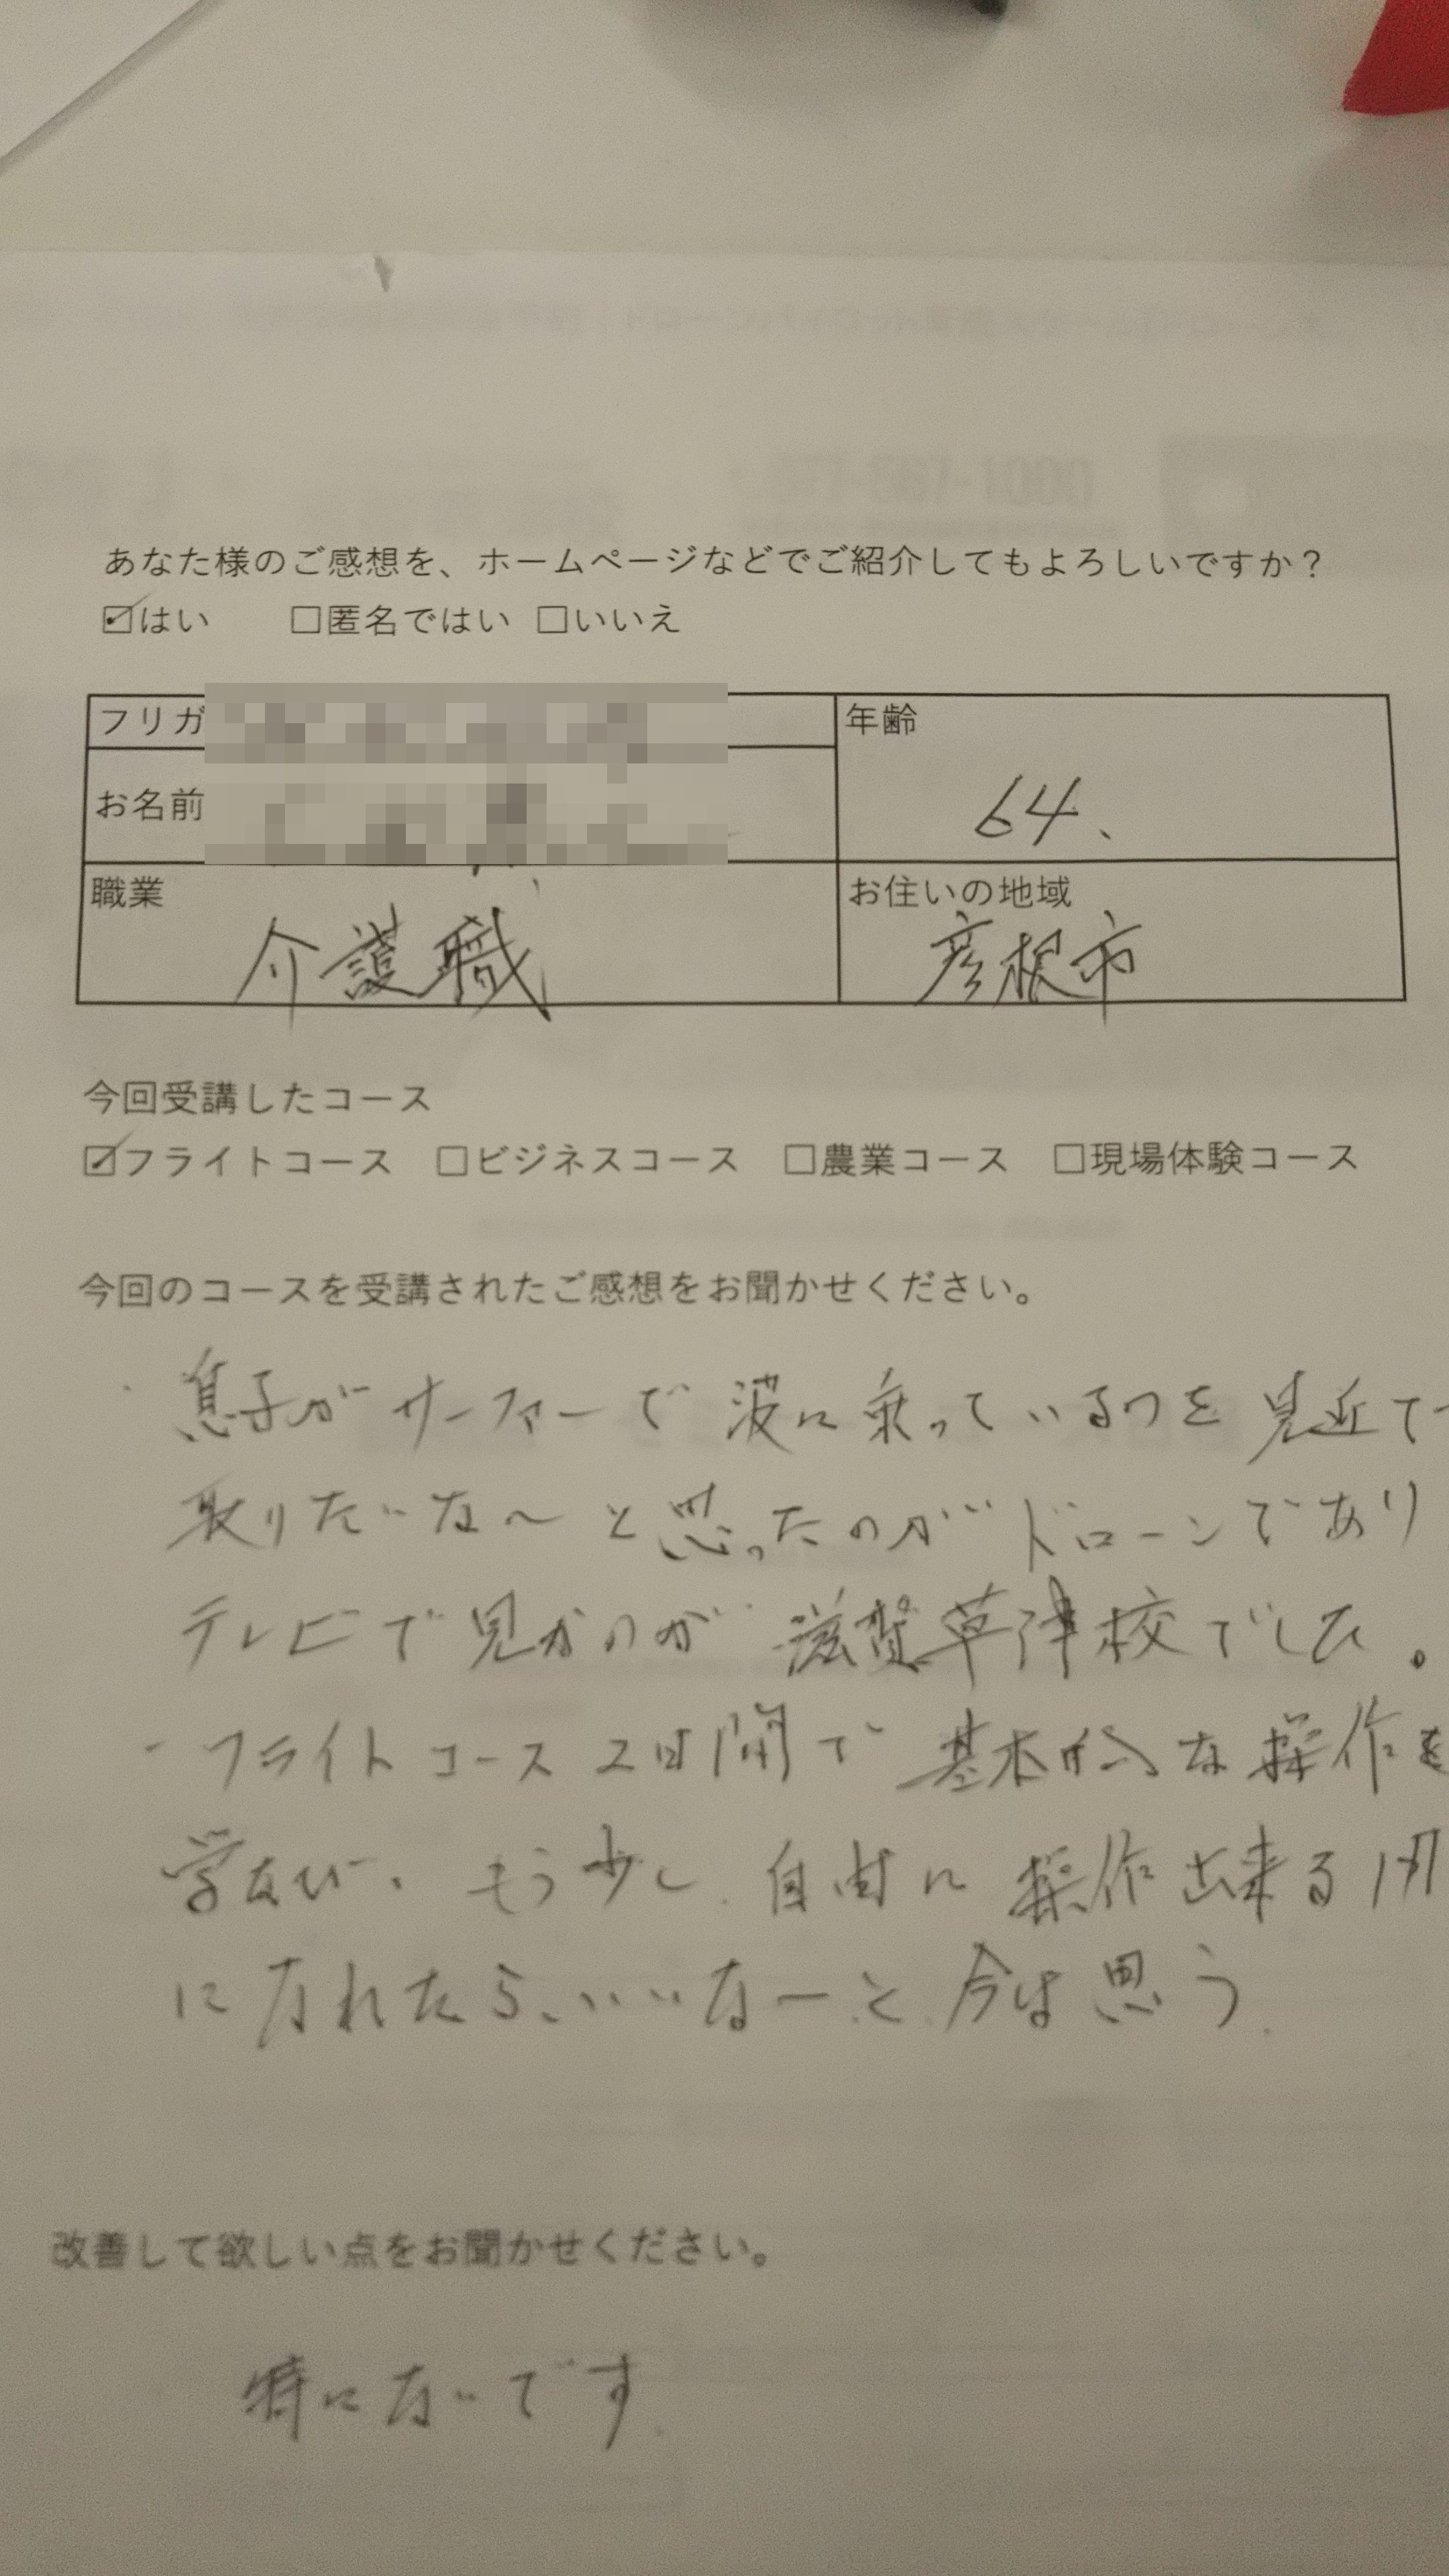 あなた様のご感想を、ホームページなどでご紹介してもよろしいですか？
☑はい □匿名ではい □いいえ
フリガ
年齢
お名前
64、
職業
お住いの地域
介護職
彦根市
今回受講したコース
☑フライトコース □ビジネスコース □農業コース □現場体験コース
今回のコースを受講されたご感想をお聞かせください。
・息子がサーファーで波に乗っているつを見近で
取りたいな〜と思ったのがドローンであり
テレビで見かのが滋賀草津校でした。
・フライトコース2日間で基本的な操作を
学なび、もう少し自由に操作出来る
になれたら、いいなーと、今は思う.
改善して欲しい点をお聞かせください。
特にないです.